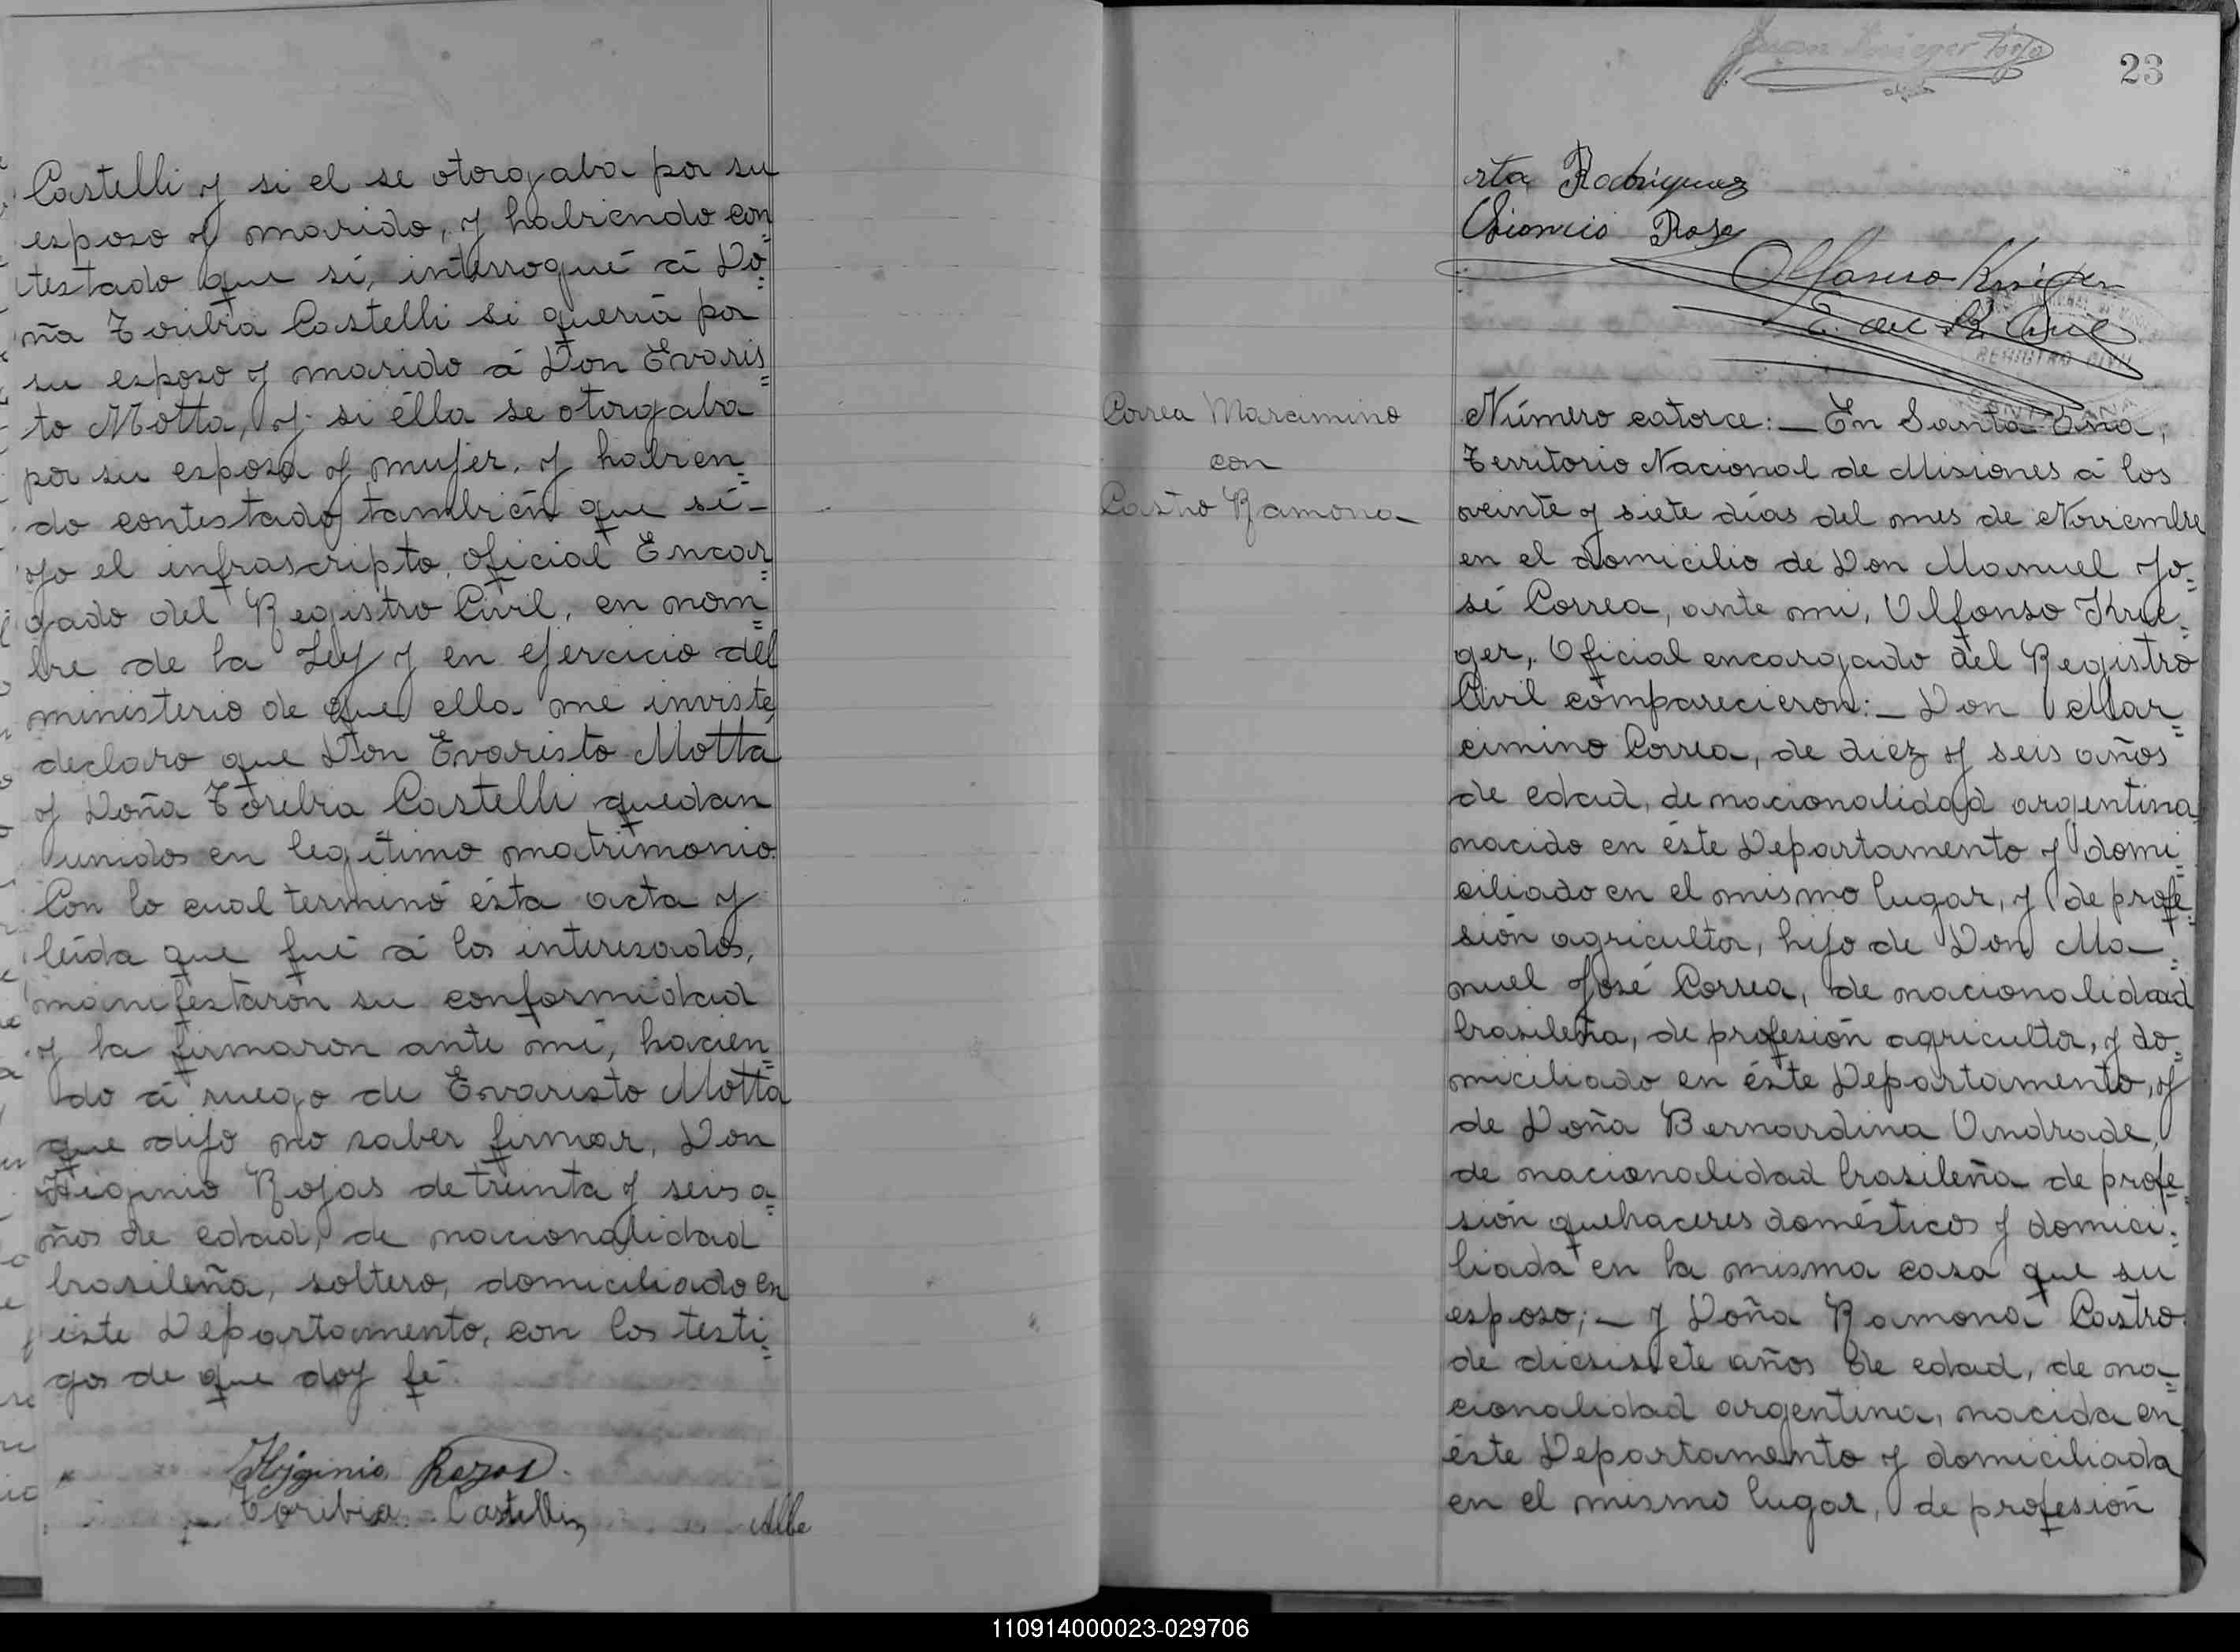 Castelli y si el se otorgaba por su
esposo y marido, y habiendo con=
testado que sí, interrogué á Do=
ña Toribia Castelli si quería por
su esposo y marido á Don Evaris=
to Motta, y si élla se otorgaba
por su esposa y mujer, y habien=
do contestado también que sí—
yo el infrascripto, oficial Encar=
gado del Registro Civil, en nom=
bre de la Ley y en ejercicio del
ministerio de que ella me inviste,
declaro que Don Evaristo Motta
y Doña Toribia Castelli quedan
unidos en legítimo matrimonio.
Con lo cual terminó ésta acta y
leída que fué á los interesados,
manifestarón su conformidad
y la firmaron ante mí, hacien=
do á ruego de Evaristo Motta
que dijo no saber firmar, Don
Higinio Rojas de treinta y seis a=
ños de edad, de nacionalidad
brasileña, soltero, domiciliado en
éste Departamento, con los testi=
gos de que doy fé.
Higginio Rozas.
Toribia Castelli
Albe
23
rta Rodriguez
Rosa
Alfonso Krieger
E. del R. Civil
REGISTRO CIVIL
SANTA ANA
Correa Marcimino
con
Castro Ramona
Número catorce:— En Santa Ana,
Territorio Nacional de Misiones á los
veinte y siete días del mes de Noviembre
en el domicilio de Don Manuel Jo=
sé Correa, ante mi, Alfonso Krie=
ger, Oficial encargado del Registro
Civil comparecieron:— Don Mar=
cimino Correa, de diez y seis años
de edad, de nacionalidad argentina
nacido en éste Departamento y domi=
ciliado en el mismo lugar, y de profe=
sión agricultor, hijo de Don Ma=
nuel José Correa, de nacionalidad
brasileña, de profesión agricultor, y do=
miciliado en éste Departamento, y
de Doña Bernardina Andrade,
de nacionalidad brasileña de profe=
sión quehaceres domésticos y domici=
liada en la misma casa que su
esposo;— y Doña Ramona Castro
de diesisiete años de edad, de na=
cionalidad argentina, nacida en
éste Departamento y domiciliada
en el mismo lugar, de profesión
110914000023-029706